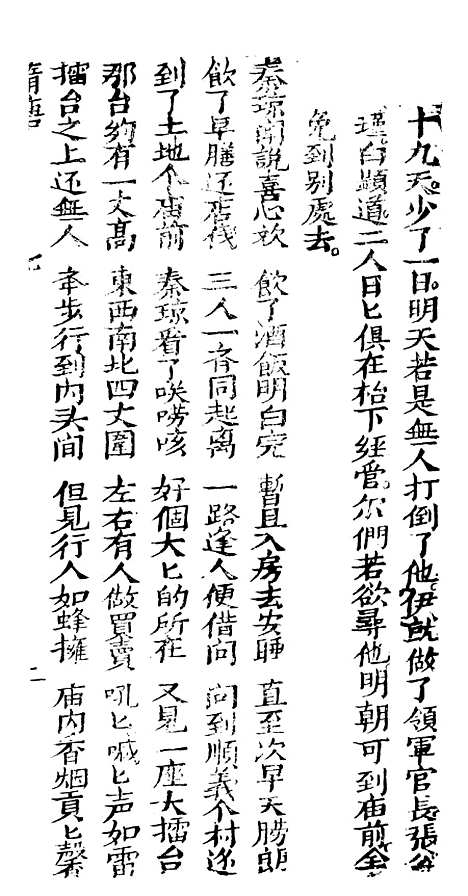 十九天。少了一日。明天若是無人打倒了他。伊就做了領軍官長。張公
瑾白顕道二人日匕俱在枱下経管。尔們若欲尋他明朝可到庙前。全
免到别處去。
秦琼闻說喜心欢　飲了酒飯明白完　暫且入房去安睡　直至次早天朥朗
飲了早膳还店伐　三人一齐同起离　一路逢人便借问　问到順義个村迩
到了土地个庙前　秦琼看了唉唠咳　好個大匕的所在　又見一座大擂台
那台約有一丈高　東西南北四丈圍　左右有人做買賣　吼匕喊匕声如雷
擂台之上还無人　牵步行到内头間　但見行人如蜂擁　庙内香烟貢匕馨
隋唐　七　二